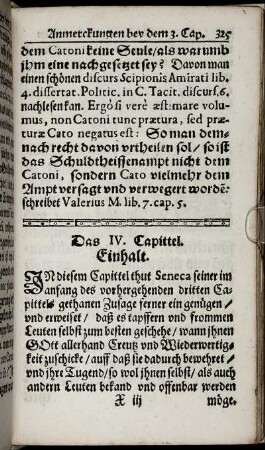 Anmerckungen bey dem 3. Cap. 325
dem Catoni keine Seule/als warumb
jhm eine nachgesetzet sey? Davon man
einen schönen discurs Scipionis Amirati lib.
4. dissertat. Politic. in C. Tacit. discurs. 6.
nachlesen kan. Ergò si verè æstimare volu-
mus, non Catoni tunc prætura, sed præ-
turæ Cato negatus est: So man dem-
nach recht davon urtheilen sol/ so ist
das Schuldtheissenampt nicht dem
Catoni, sondern Cato vielmehr dem
Ampt versagt und verwegert wordē:
schreibet Valerius M. lib. 7. cap. 5.
Das IV. Capittel.
Einhalt.
IN diesem Capittel thut Seneca seiner im
anfang des vorhergehenden dritten Ca-
pittels gethanen Zusage ferner ein genügen/
und erweiset/ daß es tapffern und frommen
Leuten selbst zum besten geschehe/ wann jhnen
GOtt allerhand Creutz und Wiederwertig-
keit zuschicke/ auff daß sie dadurch bewehret/
und jhre Tugend/ so wol jhnen selbst/ als auch
andern Leuten bekand und offenbar werden
X iij möge.